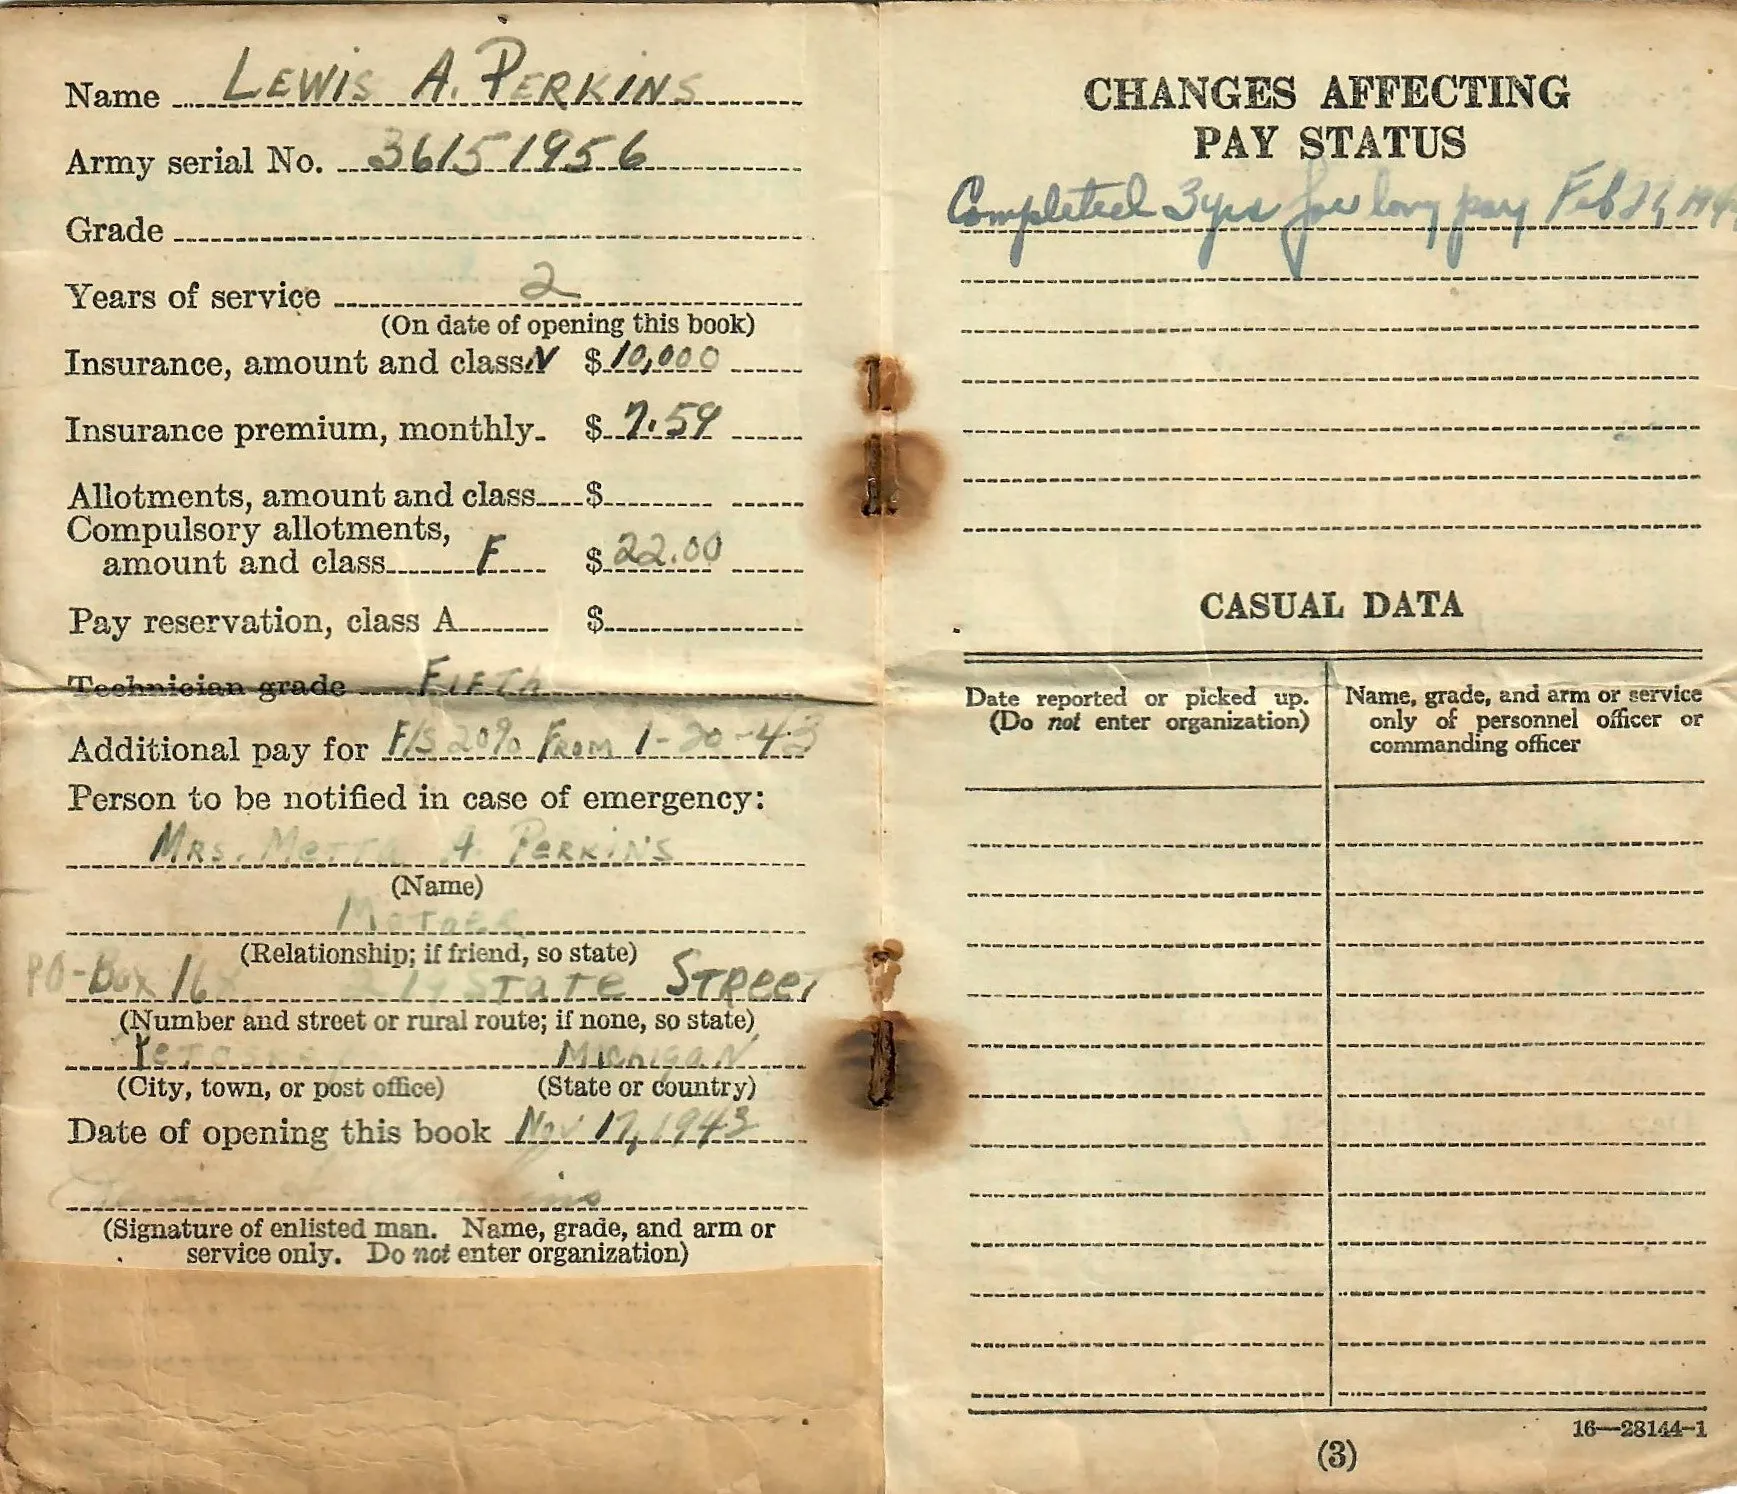 Name LEWIS A. PERKINS
Army serial No. 36151956
Grade
Years of service 2
(On date of opening this book)
Insurance, amount and class N $ 10,000
Insurance premium, monthly $ 7.59
Allotments, amount and class $
Compulsory allotments,
amount and class F $ 22.00
Pay reservation, class A $
Technician grade FIFTH
Additional pay for F/S 20% FROM 1-20-43
Person to be notified in case of emergency:
MRS. Metta A. PeRKINS
(Name)
MOTHER
(Relationship; if friend, so state)
PO-Box 16 STaTe STReeT
(Number and street or rural route; if none, so state)
PeTOSKEY MICHIGAN
(City, town, or post office) (State or country)
Date of opening this book Nov 17, 1943
(Signature of enlisted man. Name, grade, and arm or
service only. Do not enter organization)
CHANGES AFFECTING
PAY STATUS
Completed 3yrs for long pay Feb
CASUAL DATA
Date reported or picked up.
(Do not enter organization)
Name, grade, and arm or service
only of personnel officer or
commanding officer
16—28144-1
(3)